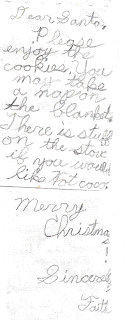 Dear Santa,
Please
enjoy the
cookies. You
may take
a nap on
the blanket.
There is stuff
on the stove
if you would
like hot coco.
Merry
Christmas
!!
Sincerely,
Faith